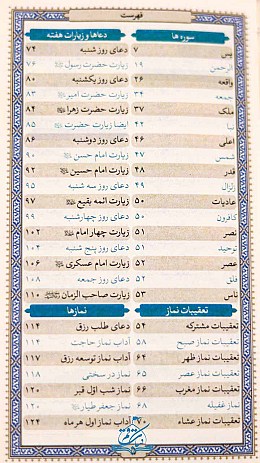 فهرست
سوره ها
یس ۷
الرحمن ۱۹
واقعه ۲۶
جمعه ۳۴
ملک ۳۷
نبا ۴۲
اعلی ۴۶
شمس ۴۷
قدر ۴۸
زلزال ۴۹
عادیات ۵۰
کافرون ۵۰
نصر ۵۱
توحید ۵۱
عصر ۵۲
فلق ۵۲
ناس ۵۳
تعقیبات نماز
تعقیبات مشترکه ۵۴
تعقیبات نماز صبح ۵۸
تعقیبات نماز ظهر ۶۴
تعقیبات نماز عصر ۶۵
تعقیبات نماز مغرب ۶۶
نماز غفیله ۶۸
تعقیبات نماز عشاء
دعاها و زیارات هفته
دعای روز شنبه ۷۴
زیارت حضرت رسول ۷۶
دعای روز یکشنبه ۸۰
زیارت حضرت امیر ۸۳
زیارت حضرت زهرا ۸۴
ایضا زیارت حضرت ۸۵
دعای روز دوشنبه ۸۶
زیارت امام حسن ۹۰
زیارت امام حسین ۹۲
دعای روز سه شنبه ۹۵
زیارت ائمه بقیع ۹۷
دعای روز چهارشنبه ۹۹
زیارت چهار امام ۱۰۲
دعای روز پنج شنبه ۱۰۳
زیارت امام عسکری ۱۰۶
دعای روز جمعه ۱۰۸
زیارت صاحب الزمان ۱۱۰
نمازها
دعای طلب رزق ۱۱۴
آداب نماز حاجت ۱۱۴
آداب نماز توسعه رزق ۱۱۷
نماز در سختی ۱۱۸
نماز شب اوّل قبر ۱۲۰
نماز جعفر طیار ۱۲۰
آداب نماز اول هر ماه ۱۲۴